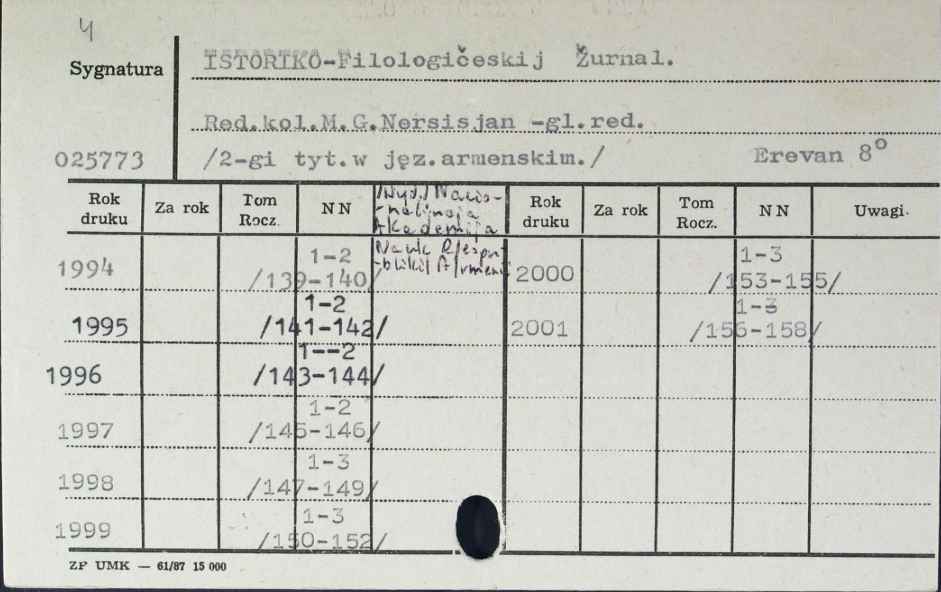 4
Sygnatura
ISTORIKO-Filologičeskij Žurnal.
Red.kol.M.G.Nersisjan -gl.red.
025773
/2-gi tyt.w jęz.armenskim./ Erevan 8°
Rok druku Za rok Tom Rocz. NN /Wyd./ Nacio- Rok druku Za rok Tom Rocz. NN Uwagi.
-nalʹnaja
Akademija
Nauk R/espu-
-bliki/ A/rmenii
1994 1-2 /139-140/ 2000 1-3 /153-155/
1995 1-2 /141-142/ 2001 1-3 /156-158/
1996 1--2 /143-144/
1997 1-2 /145-146/
1998 1-3 /147-149/
1999 1-3 /150-152/
ZP UMK — 61/87 15 000